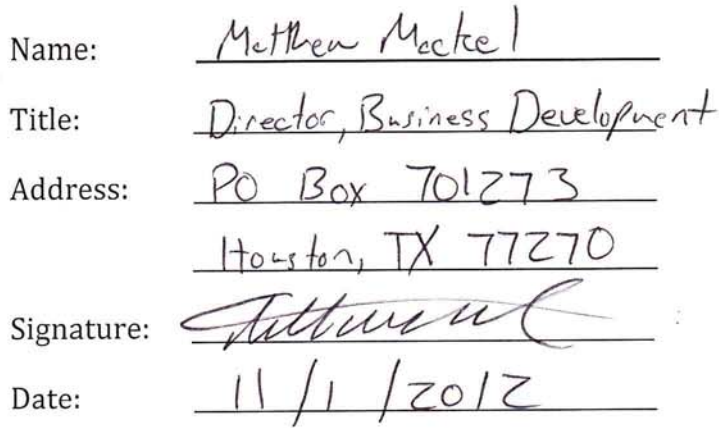 Name: Matthew Mackel
Title: Director, Business Development
Address: PO Box 701273
Houston, TX 77270
Signature:
Date: 11/1/2012